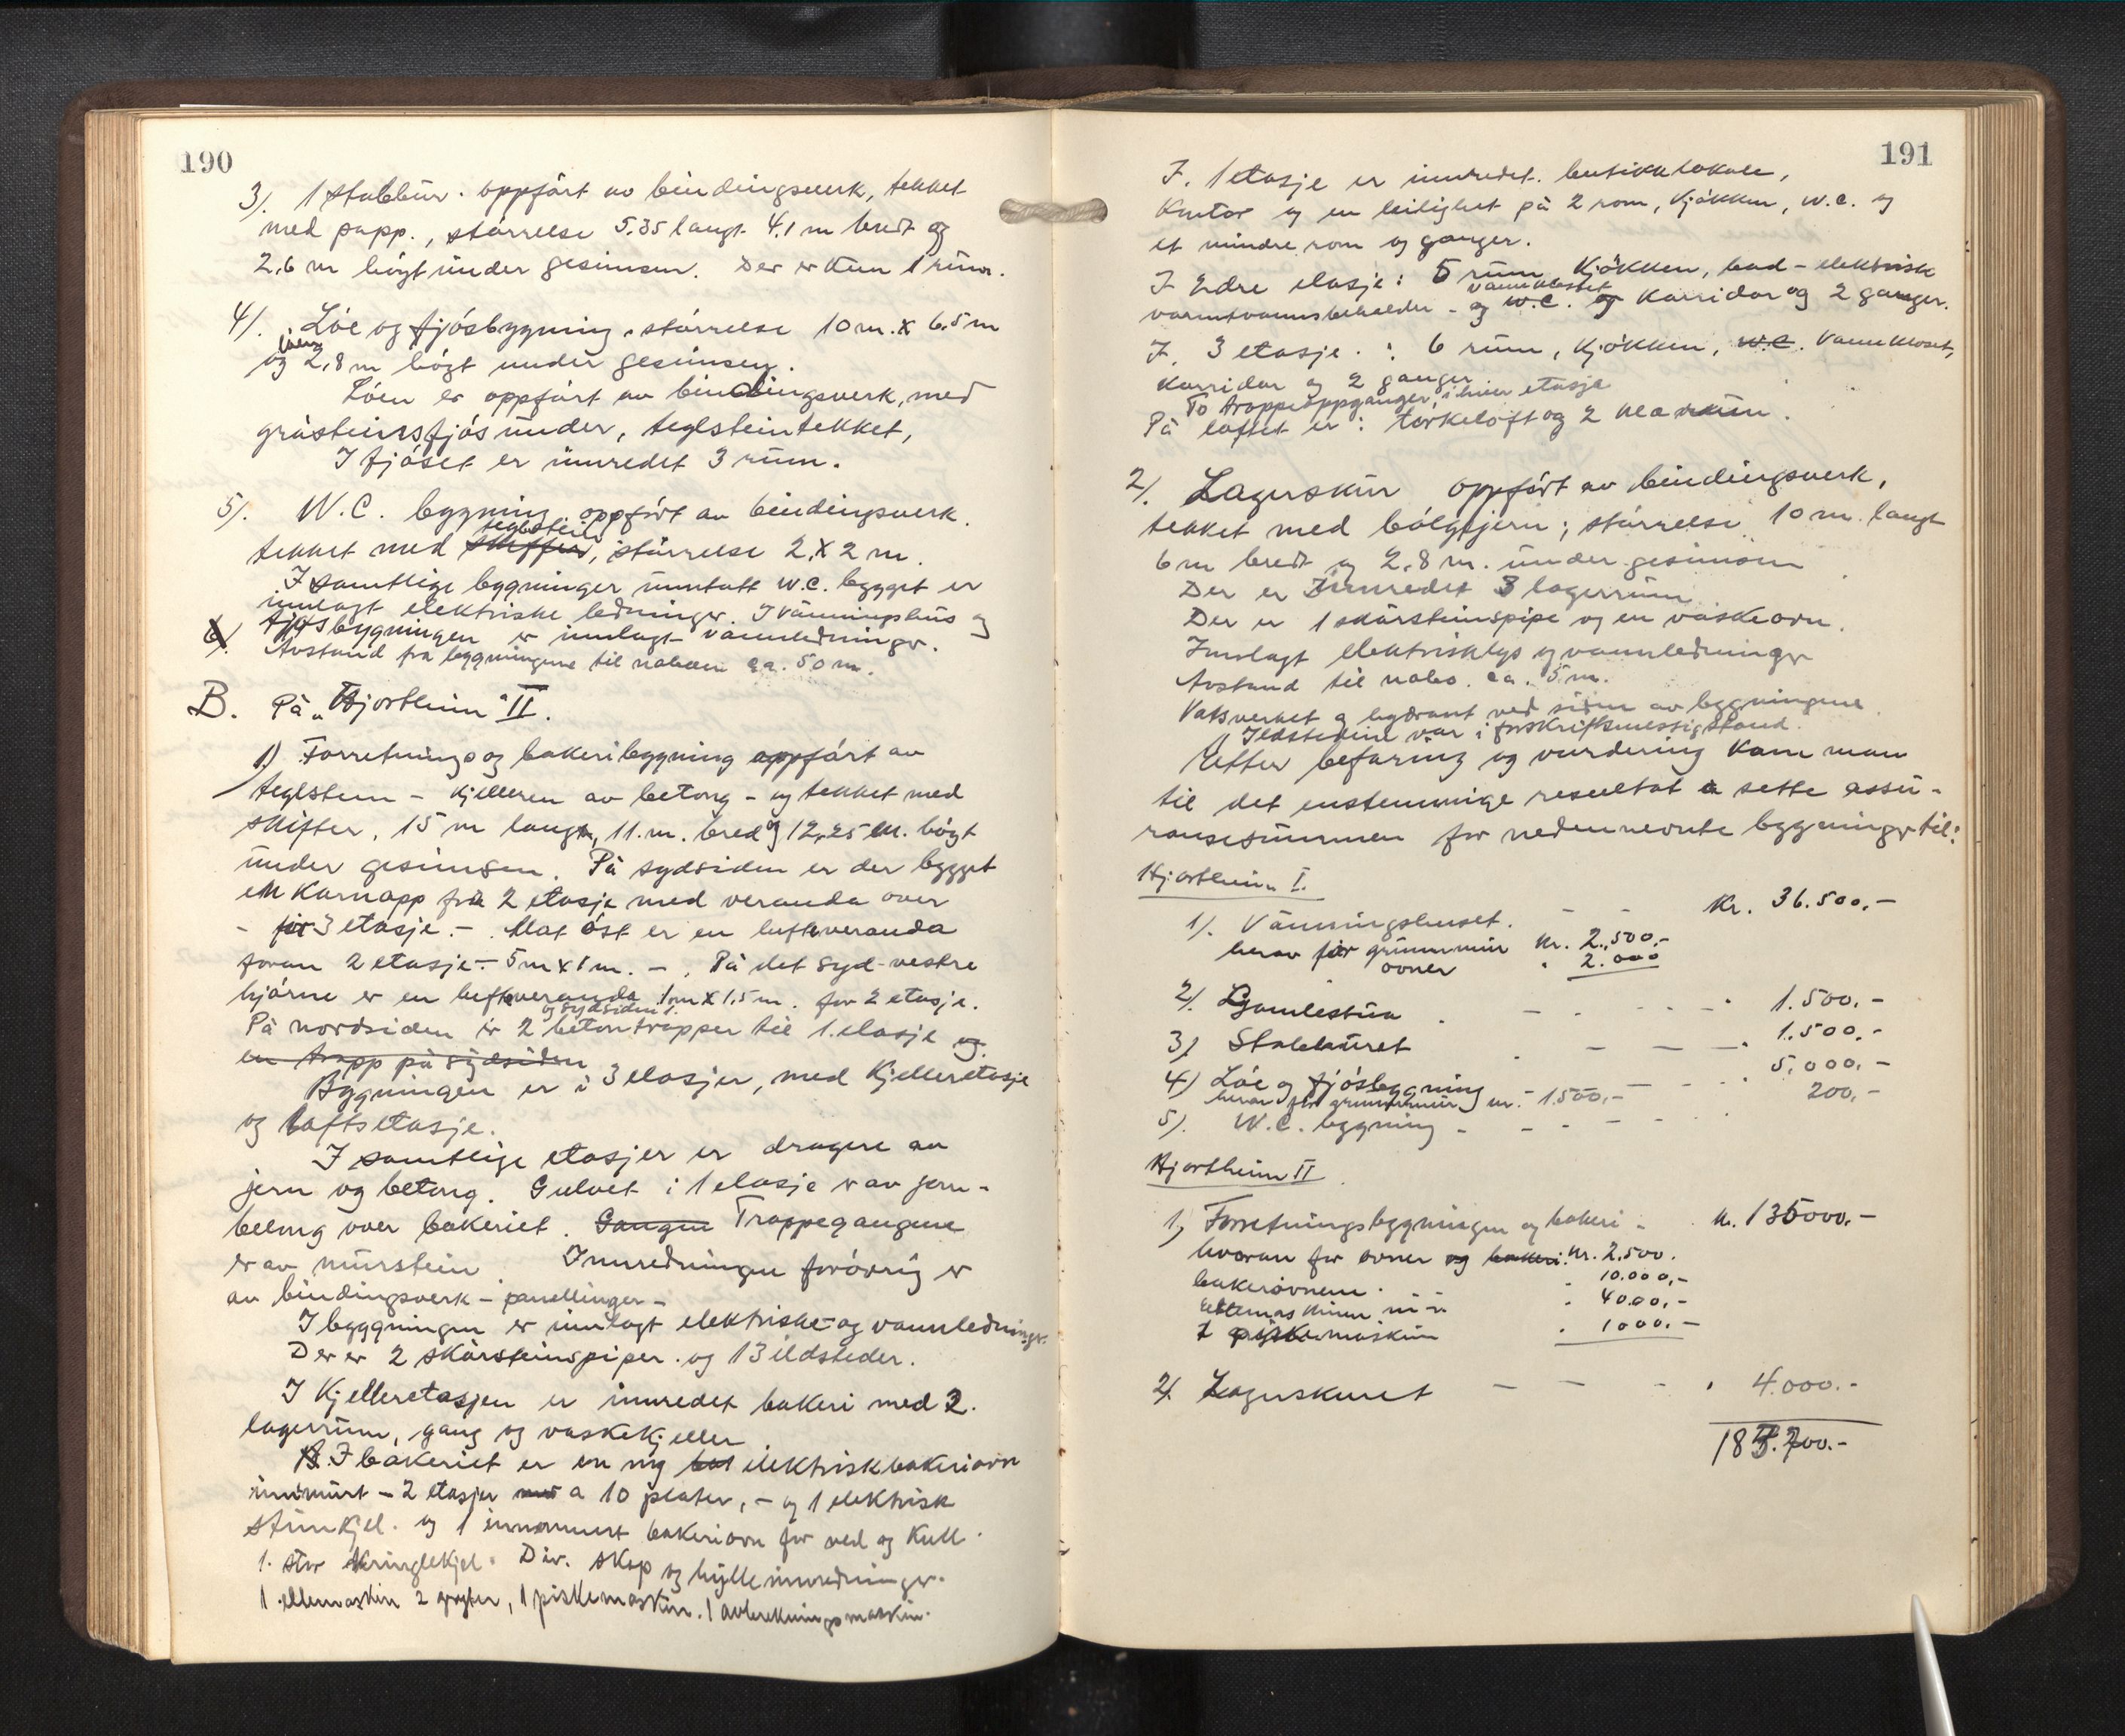 190
3). 1 stabbur. oppført av bindingsverk, tekket
med papp., størrelse 5.35 langt 4.1 m bredt og
2,6 m høgt under gesimsen. Der er kun 1 rum.
4). Løe og fjøsbygning, størrelse 10 m. x 6,5 m
løen
og 2,8 m høgt under gesimsen.
Løen er oppført av bindingsverk, med
gråsteinsfjøs under, teglsteintekket,
I fjøset er innredet 3 rum.
5). W.C. bygning. oppført av bindingsverk.
teglstein
tekket med skiffer, størrelse 2 x 2 m.
I samtlige bygninger unntatt w.c. bygget er
innlagt elektriske ledninger. I våningshus og
fjøsbygningen er innlagt vannledninger.
6). Avstand fra bygningene til naboen ca. 50 m.
B. På „Hjortheim" II.
1) Forretnings og bakeribygning oppført av
teglstein – kjelleren av betong – og tekket med
skifter, 15 m langt, 11. m. bred og 12,25 m. høgt
under gesimsen. På sydsiden er der bygget
en karnapp fra 2 etasje med veranda over
– for 3 etasje. –. Mot øst er en luftveranda
foran 2 etasje – 5 m x 1 m. –. På det syd-vestre
hjørne er en luftveranda 1 m x 1,5 m. for 2 etasje.
og sydsiden 1.
På nordsiden er 2 betontrapper til 1. etasje og
en trapp på sydsiden
Bygningen er i 3 etasjer, med kjelleretasje
og loftsetasje.
I samtlige etasjer er dragere av
jern og betong. Gulvet i 1 etasje er av jern-
betong over bakeriet. Gangen Trappegangene
er av murstein Innredningen forøvrig er
av bindingsverk – panellinger –
I bygningen er innlagt elektriske- og vannledninger.
Der er 2 skorsteinspiper. og 13 ildsteder.
I kjelleretasjen er innredet bakeri med 2.
lagerrum, gang og vaskekjeller
I bakeriet er en ny elektrisk bakeriovn
innmurt – 2 etasjer a 10 plater, – og 1 elektrisk
1 innmurt bakeriovn for ved og kull.
1. stor kringlekjel. Div. skap og hylleinnredninger.
1 eltemaskin 2 gryter, 1 piskemaskin. 1 avberekningsmaskin.
191
I. 1 etasje er innredet. butikklokale,
kontor og en leilighet på 2 rom, kjøkken, w.c. og
et mindre rom og ganger.
I 2dre etasje: 5 rum, kjøkken, bad – elektrisk
vannkloset
varmtvannsbeholder – og w.c. og korridor og 2 ganger.
I. 3 etasje. : 6 rum, kjøkken, w.c. vannkloset,
korridor og 2 ganger
To trappeoppganger i hver etasje
På loftet er: tørkeloft og 2 kle rum.
2). Lagerskur oppført av bindingsverk,
tekket med bølgjern; størrelse 10 m. langt
6 m bredt og 2,8 m. under gesimsen
Der er innredet 3 lagerrum
Der er 1 skorsteinspipe og en vaskeovn.
Innlagt elektrisklys og vannledninger
Avstand til nabo. ca. 5 m.
Vassverket og hydrant ved siden av bygningene
Ildstedene var i forskriftsmessig stand.
Etter befaring og vurdering kom man
til det enstemmige resultat å sette assu-
ransesummen for nedennevnte bygninger til:
Hjortheim I.
1). Våningshuset. – – Kr. 36.500,–
herav for grunnmur kr. 2.500,–
ovner " 2.000
2) Gamlestua . – – – " 1.500,–
3) Stabburet . – – – " 1.500,–
4) Løe og fjøsbygning – – – " 5.000,–
herav for grunnmur kr. 1500,–
5). W.C. bygning – – – – 200,–
Hjortheim II
1) Forretningsbygningen og bakeri – kr. 135000,–
hvorav for ovner og bakeri kr. 2.500.
bakerovnene . " 10.000,–
eltemaskinen " 4000,–
1 piskemaskin " 1000,–
2) Lagerskuret – – – " 4.000.–